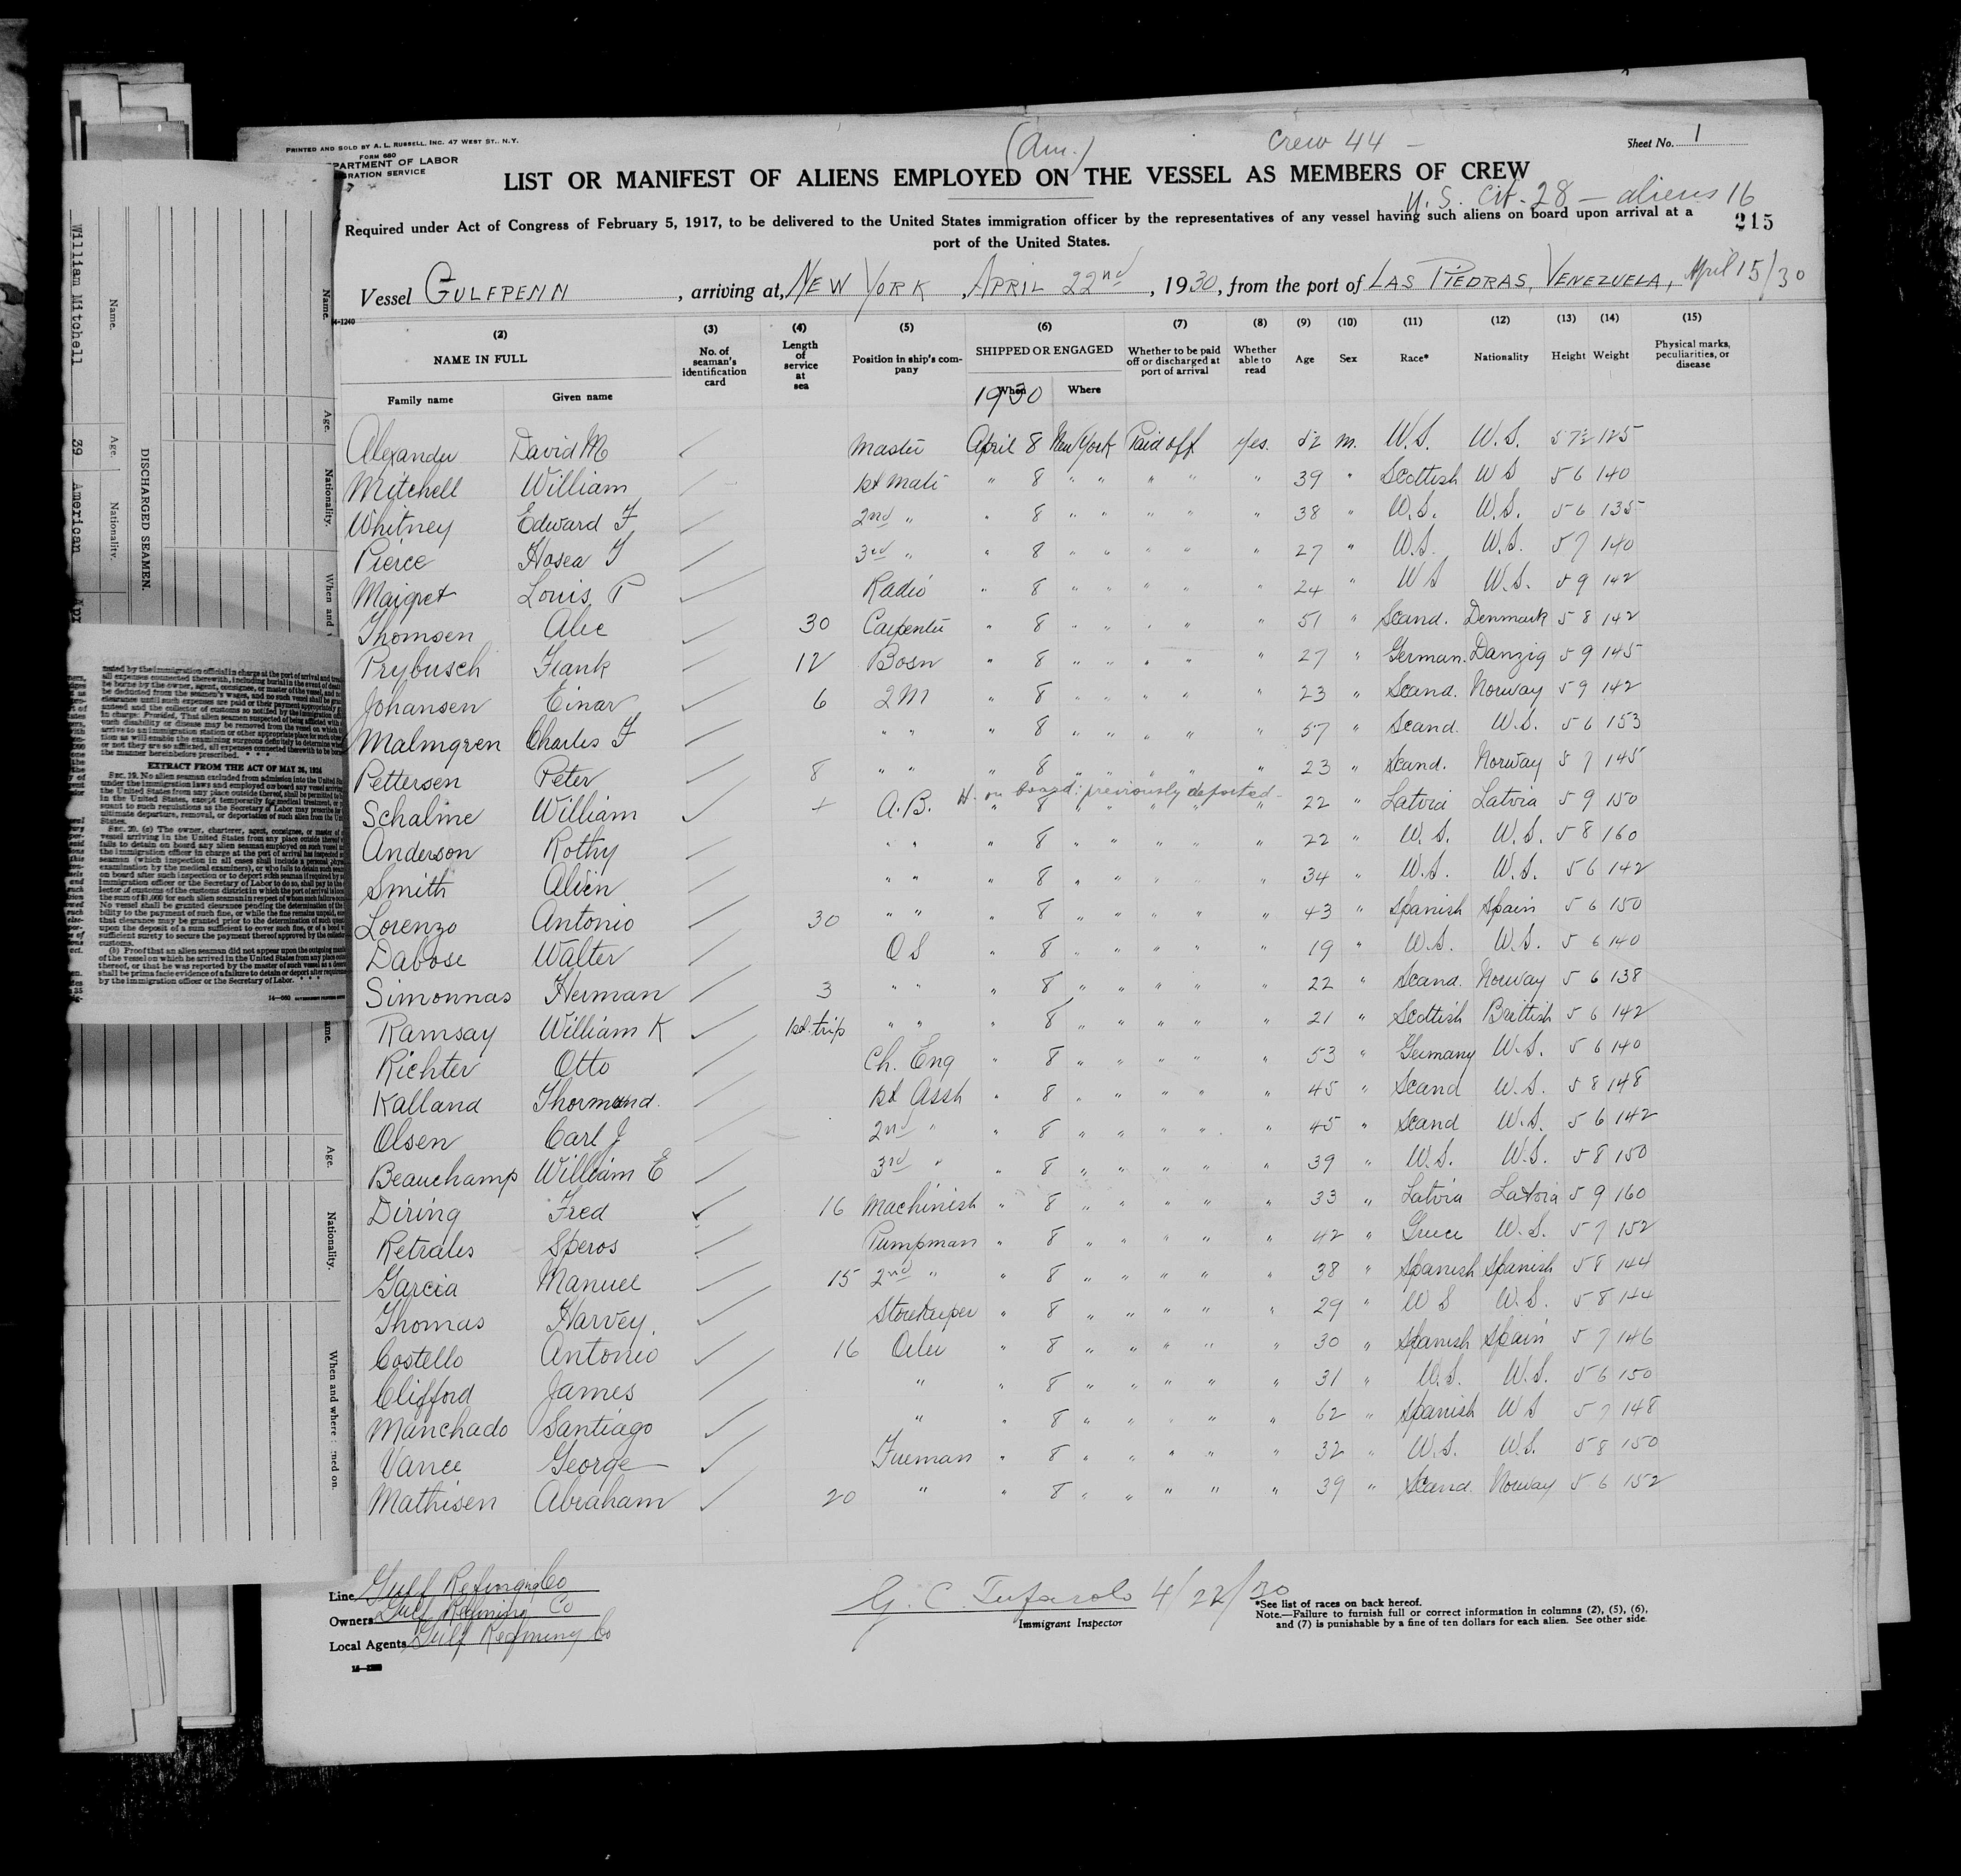 PRINTED AND SOLD BY A. L. RUSSELL, INC. 47 WEST ST., N.Y.
FORM 680
PARTMENT OF LABOR
GRATION SERVICE
(Am.)
Crew 44 -
Sheet No. 1
LIST OR MANIFEST OF ALIENS EMPLOYED ON THE VESSEL AS MEMBERS OF CREW
U.S. Cit. 28 — aliens 16
Required under Act of Congress of February 5, 1917, to be delivered to the United States immigration officer by the representatives of any vessel having such aliens on board upon arrival at a
port of the United States.
215
Vessel GULFPENN, arriving at, NEW YORK, APRIL 22nd, 1930, from the port of LAS PIEDRAS, VENEZUELA, April 15/30
14-1240
(2) (3) (4) (5) (6) (7) (8) (9) (10) (11) (12) (13) (14) (15)
NAME IN FULL No. of seaman's identification card Length of service at sea Position in ship's company SHIPPED OR ENGAGED Whether to be paid off or discharged at port of arrival Whether able to read Age Sex Race* Nationality Height Weight Physical marks, peculiarities, or disease
Family name Given name When Where
1930
Alexander David M Master April 8 New York Paid off Yes. 52 m. U.S. U.S. 5 7½ 125
Mitchell William 1st Mate " 8 " " " " " 39 " Scottish U S 5 6 140
Whitney Edward F 2nd " " 8 " " " " " 38 " U.S. U.S. 5 6 135
Pierce Hosea T 3rd " " 8 " " " " " 27 " U.S. U.S. 5 7 140
Maigret Louis P Radio " 8 " " " " " 24 " U S U.S. 5 9 142
Thomsen Alec 30 Carpenter " 8 " " " " " 51 " Scand. Denmark 5 8 142
Prybusch Frank 12 Bosn " 8 " " " " " 27 " German. Danzig 5 9 145
Johansen Einar 6 2M " 8 " " " " " 23 " Scand. Norway 5 9 142
Malmgren Charles F " " " 8 " " " " " 57 " Scand. U.S. 5 6 153
Pettersen Peter 8 " " " 8 " " " " " 23 " Scand. Norway 5 7 145
on board: previously deported -
Schalme William A.B. " 8 " " " " " 22 " Latvia Latvia 5 9 150
Anderson Rothy " " " 8 " " " " " 22 " U.S. U.S. 5 8 160
Smith Alvin " " " 8 " " " " " 34 " U.S. U.S. 5 6 142
Lorenzo Antonio 30 " " " 8 " " " " " 43 " Spanish Spain 5 6 150
Dabose Walter O S " 8 " " " " " 19 " U.S. U.S. 5 6 140
Simonnas Herman 3 " " " 8 " " " " " 22 " Scand. Norway 5 6 138
Ramsay William K 1st. trip " " " 8 " " " " " 21 " Scottish Brittish 5 6 142
Richter Otto Ch. Eng " 8 " " " " " 53 " Germany U.S. 5 6 140
Kalland Thormund. 1st Asst " 8 " " " " " 45 " Scand U.S. 5 8 148
Olsen Carl J 2nd " " 8 " " " " " 45 " Scand U.S. 5 6 142
Beauchamp William E 3rd " " 8 " " " " " 39 " U.S. U.S. 5 8 150
Diring Fred 16 Machinist " 8 " " " " " 33 " Latvia Latvia 5 9 160
Retrales Speros Pumpman " 8 " " " " " 42 " Greece U.S. 5 7 152
Garcia Manuel 15 2nd " " 8 " " " " " 38 " Spanish Spanish 5 8 144
Thomas Harvey Storekeeper " 8 " " " " " 29 " U S U.S. 5 8 144
Costello Antonio 16 Oiler " 8 " " " " " 30 " Spanish Spain 5 7 146
Clifford James " " 8 " " " " " 31 " U.S. U.S. 5 6 150
Manchado Santiago " " 8 " " " " " 62 " Spanish U S 5 7 148
Vance George Fireman " 8 " " " " " 32 " U.S. U.S. 5 8 150
Mathisen Abraham 20 " " 8 " " " " " 39 " Scand. Norway 5 6 152
Line Gulf Refining Co
Owners Gulf Refining Co
Local Agents Gulf Refining Co
G. C. Tufarolo 4/22/30
Immigrant Inspector
*See list of races on back hereof.
Note.—Failure to furnish full or correct information in columns (2), (5), (6),
and (7) is punishable by a fine of ten dollars for each alien. See other side.
William Mitchell 39 American Apr
Name. Age. Nationality.
DISCHARGED SEAMEN.
Name. Age. Nationality. When and
EXTRACT FROM THE ACT OF MAY 26, 1924
Age. Nationality. When and where